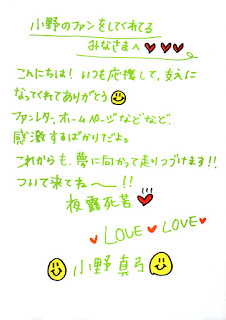 小野のファンをしてくれてる
みなさまへ♥♥♥
こんにちは！いつも応援して、支えに
なってくれてありがとう
ファンレター、ホームページなどなど、
感激するばかりだよ。
これからも、夢に向かって走りつづけます!!
ついて来てね〜!!
夜露死苦♥
♥ LOVE ♥ LOVE♥
小野真弓